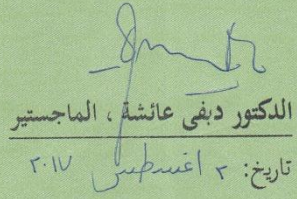 الدكتور دبفى عائشة ، الماجستير
تاريخ: ٢ اغسطس ٢٠١٧